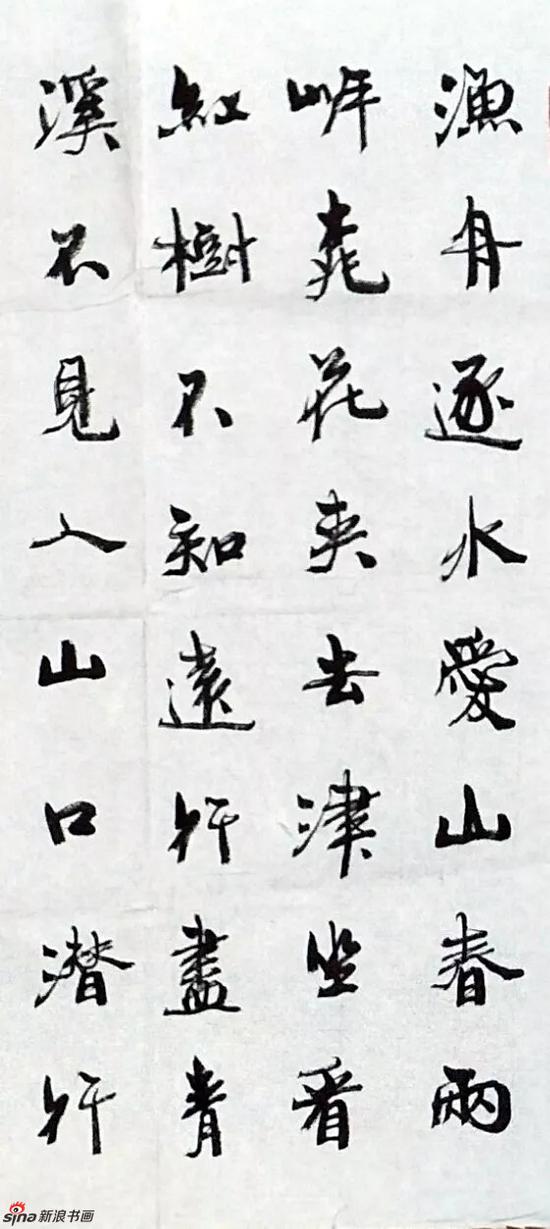 漁舟逐水愛山春兩
岸桃花夾去津坐看
紅樹不知遠行盡青
溪不見入山口潛行
sina新浪书画